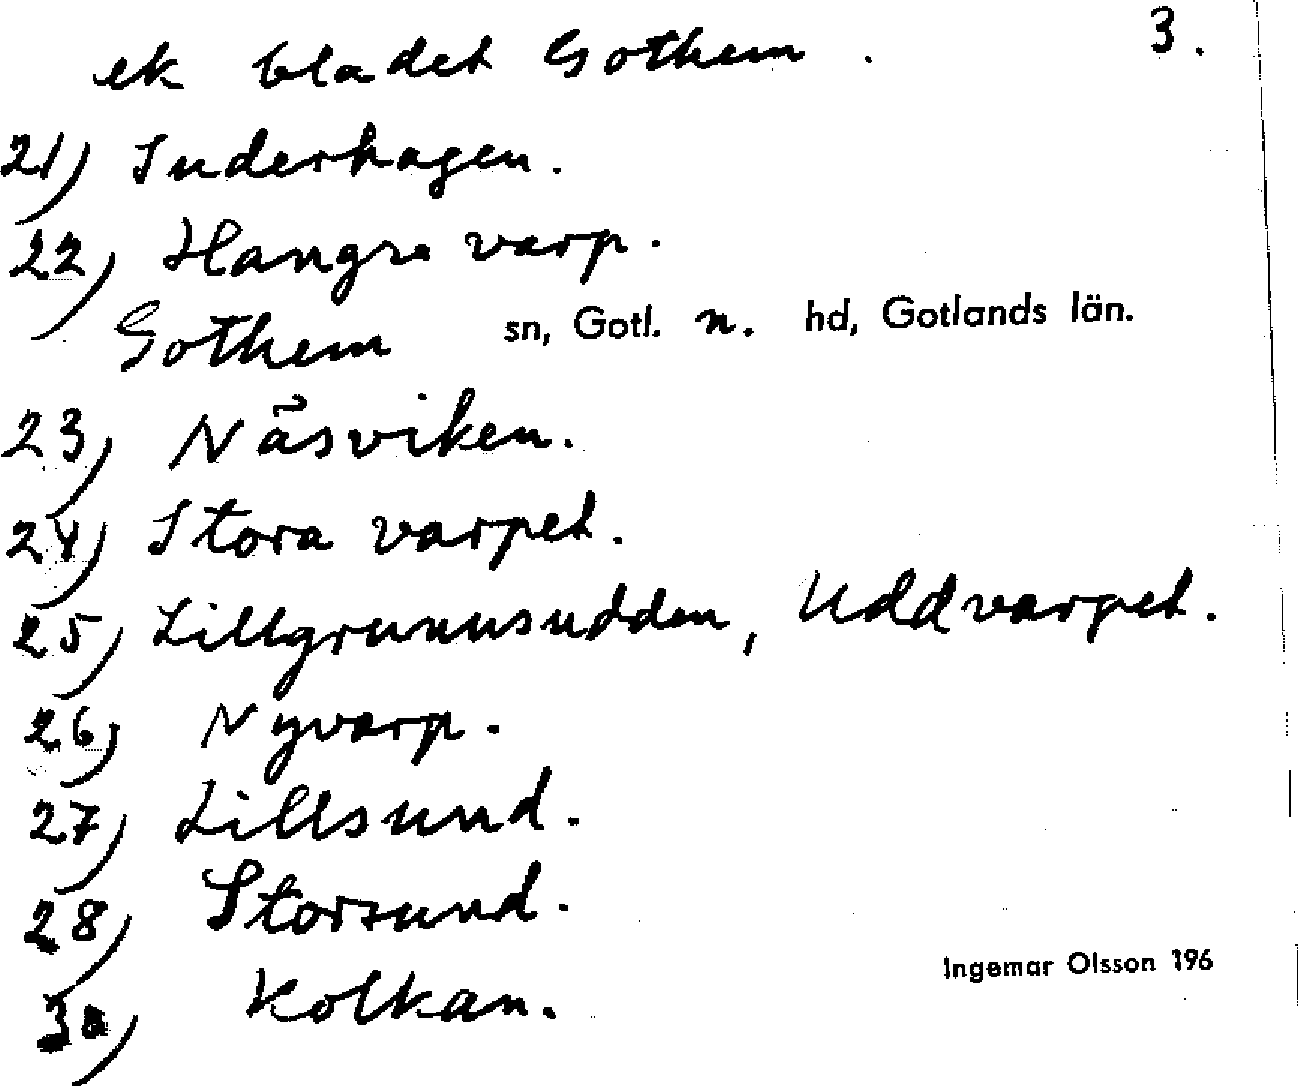 ek bladet Gothem. 3.
21) Suderhagen.
22) Hangre varp.
Gothem sn, Gotl. n. hd, Gotlands län.
23) Näsviken.
24) Stora varpet.
25) Lillgrunnsudden, Uddvarpet.
26) Nyvarp.
27) Lillsund.
28) Storsund.
30) Kolkan.
Ingemar Olsson 196